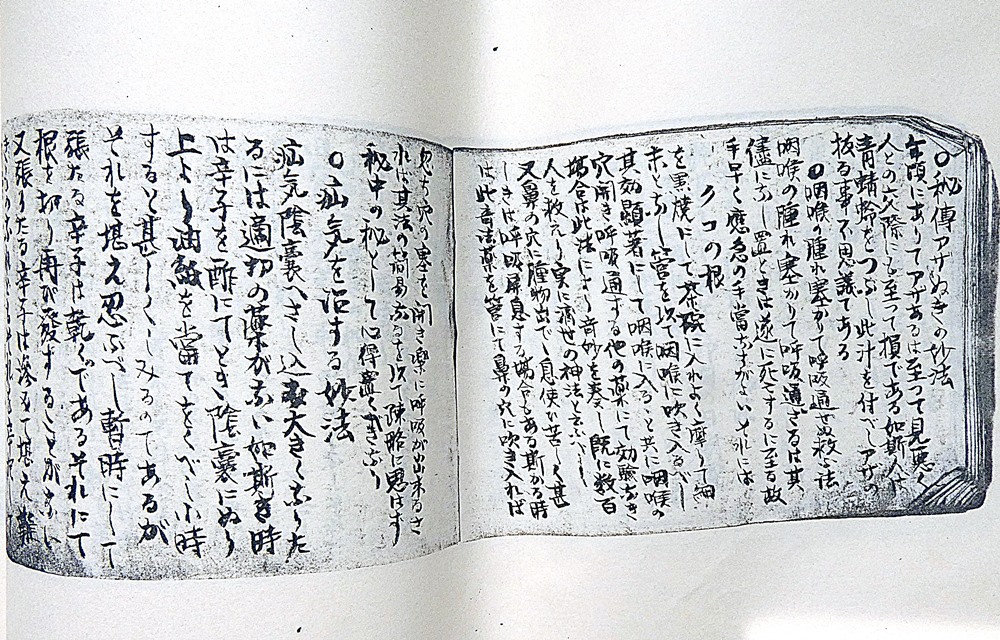 ○秘傳アザぬきの妙法
年頃にありてアザあるは至つて見悪く
人との交際にも至つて損である如斯人は
青蜻蛉をつぶし此汁を付べしアザの
抜る事不思議である
○咽喉の腫れ塞がりて呼吸通ぜぬ救ふ法
咽喉の腫れ塞がりて呼吸通ざるは其
儘にふし置ときは遂に死するに至る故
手早く應急の手當なすがよいそれには
クコの根
を黒焼にして茶碗に入れよく摩して細
末となし管を以て咽喉に吹き入るべし
其効顕著にして咽喉に入ると共に咽喉の
穴開き呼吸通する他の薬にて効験なき
場合は此法により奇妙を奏し既に数百
人を救えり実に済世の神法と云ふべし
又鼻の穴に腫物出で息使か苦しく甚
しきは呼吸屏息する場合もある斯かる時
は此音法薬を管にて鼻の穴に吹き入れば
見ち穴の塞を開き楽に呼吸が出来るさ
れば其法の簡易なるを以て疎略に思はず
秘中の秘として心得置くべきなり
○疝気を治する妙法
疝気陰嚢へさし込大きくなりた
るには適切の薬がない如斯き時
は辛子を酢にてとき陰嚢にぬり
上より油紙を當てをくべし小時
すると甚しくしみるのであるが
それを堪え忍ぶべし暫時にして
張たる辛子は乾くであるそれにて
根を切り再び發することがない
又張りたる辛子は滲みて堪え難